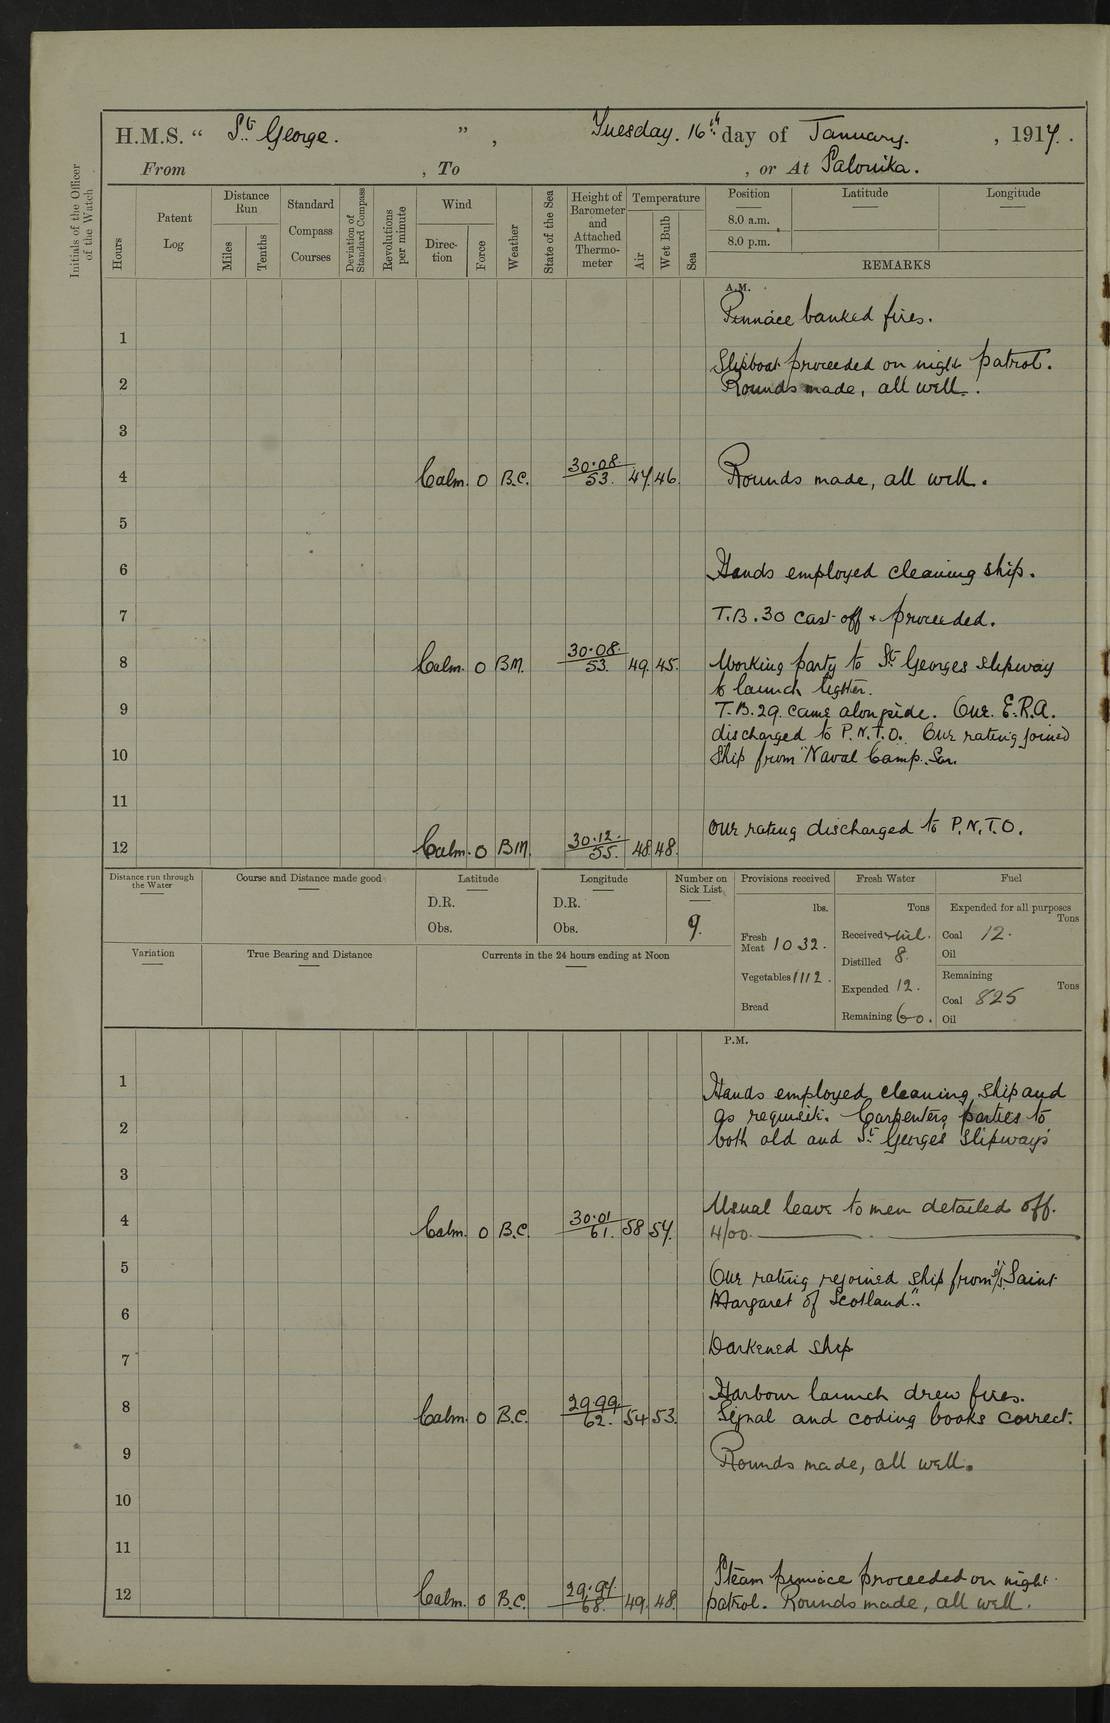 H.M.S. “ St George. ”, Tuesday. 16th day of January. , 1917.
From , To , or At Salonika.
Initials of the Officer of the Watch
Hours
Patent Log
Distance Run
Miles
Tenths
Standard Compass Courses
Deviation of Standard Compass
Revolutions per minute
Wind
Direction
Force
Weather
State of the Sea
Height of Barometer and Attached Thermometer
Temperature
Air
Wet Bulb
Sea
Position
8.0 a.m.
8.0 p.m.
Latitude
Longitude
REMARKS
A.M.
Pinnace banked fires.
1
Slipboat proceeded on night patrol.
2 Rounds made, all well.
3
4 Calm. 0 B.C. 30·08 53. 47. 46. Rounds made, all well.
5
6 Hands employed cleaning ship.
7 T.B. 30 cast off + proceeded.
8 Calm. 0 BM. 30·08 53. 49. 45. Working party to St Georges slipway
to launch lighter.
9 T.B. 29. came alongside. One. E.R.A.
discharged to P.N.T.O. One rating joined
10 ship from "Naval Camp.
11
One rating discharged to P.N.T.O.
12 Calm. 0 BM. 30·12 55. 48. 48.
Distance run through the Water
Course and Distance made good
Latitude
D.R.
Obs.
Longitude
D.R.
Obs.
Number on Sick List
9.
Provisions received
lbs.
Fresh Meat 1032.
Vegetables 1112.
Bread
Fresh Water
Tons
Received nil.
Distilled 8.
Expended 12.
Remaining 60.
Fuel
Expended for all purposes
Tons
Coal 12.
Oil
Remaining
Tons
Coal 825
Oil
Variation
True Bearing and Distance
Currents in the 24 hours ending at Noon
P.M.
1 Hands employed cleaning ship and
as requisite. Carpenters parties to
2 both old and St George's slipways
3
Usual leave to men detailed off.
4 Calm. 0 B.C. 30·01 61. 58 57. 4/00.
5 One rating rejoined ship from s/s "Saint
6 Margaret of Scotland".
Darkened ship
7
Harbour launch drew fires.
8 Calm. 0 B.C. 29.99 62. 54 53. Signal and coding books correct.
9 Rounds made, all well.
10
11
Steam pinnace proceeded on night
12 Calm. 0 B.C. 29.97. 68. 49. 48. patrol. Rounds made, all well.